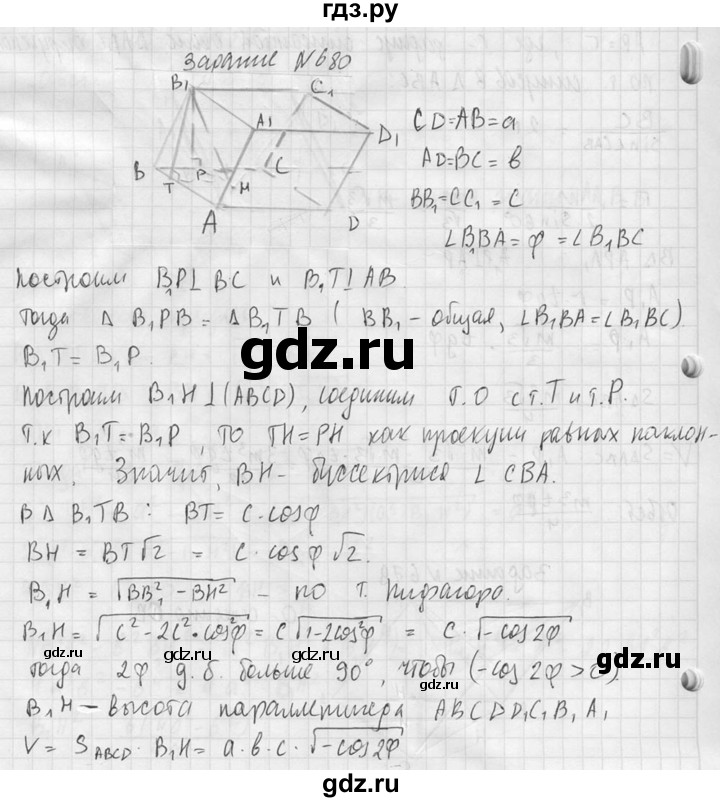 гдз.ру
Задание №680
B₁ C₁
A₁ D₁
B T P H C
A D
CD=AB=a
AD=BC=в
BB₁=CC₁=C
∠B₁BA=φ=∠B₁BC
Построим B₁P⊥BC и B₁T⊥AB.
Тогда Δ B₁PB = ΔB₁TB (BB₁ - общая, ∠B₁BA=∠B₁BC)
B₁T = B₁P.
Построим B₁H⊥(ABCD), соединим т.О с т.T и т.P.
Т.к B₁T=B₁P, то TH=PH как проекции равных наклон-
ных. Значит, BH - биссектриса ∠ CBA.
В Δ B₁TB : BT= C·cosφ
BH = BT√2 = C·cosφ√2.
B₁H = √BB₁² - BH² - по т. Пифагора.
B₁H= √C²-2C²·cos²φ = C√1-2cos²φ = C·√-cos2φ
Тогда 2φ д.б. больше 90°, чтобы (-cos2φ>0)
B₁H - высота параллепипера ABCDD₁C₁B₁A₁
V = S_ABCD · B₁H = a·в·c·√-cos2φ
gdz.ru
gdz.ru
gdz.ru
gdz.ru
gdz.ru
gdz.ru
gdz.ru
gdz.ru
gdz.ru